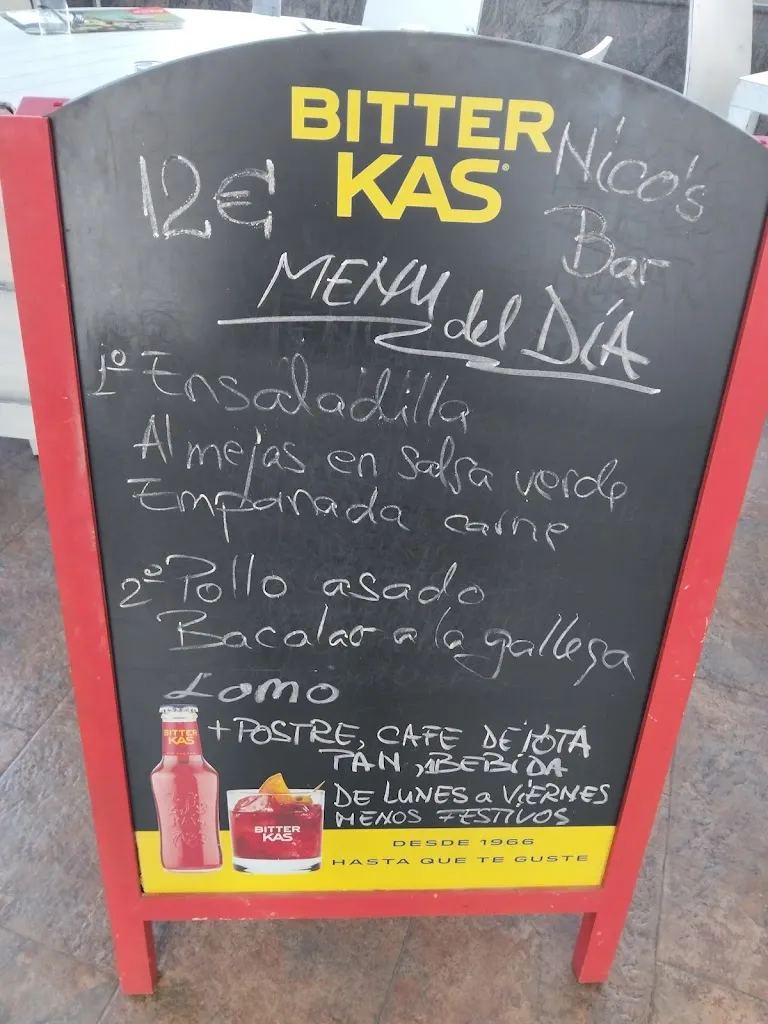 BITTER
KAS
12€
Nico's
Bar
MENU del DÍA
1º Ensaladilla
Almejas en salsa verde
Empanada carne
2º Pollo asado
Bacalao a la gallega
Lomo
+ POSTRE, CAFE DE POTA
PAN, 1 BEBIDA
DE LUNES a VIERNES
MENOS FESTIVOS
BITTER
KAS
BITTER
KAS
DESDE 1966
HASTA QUE TE GUSTE